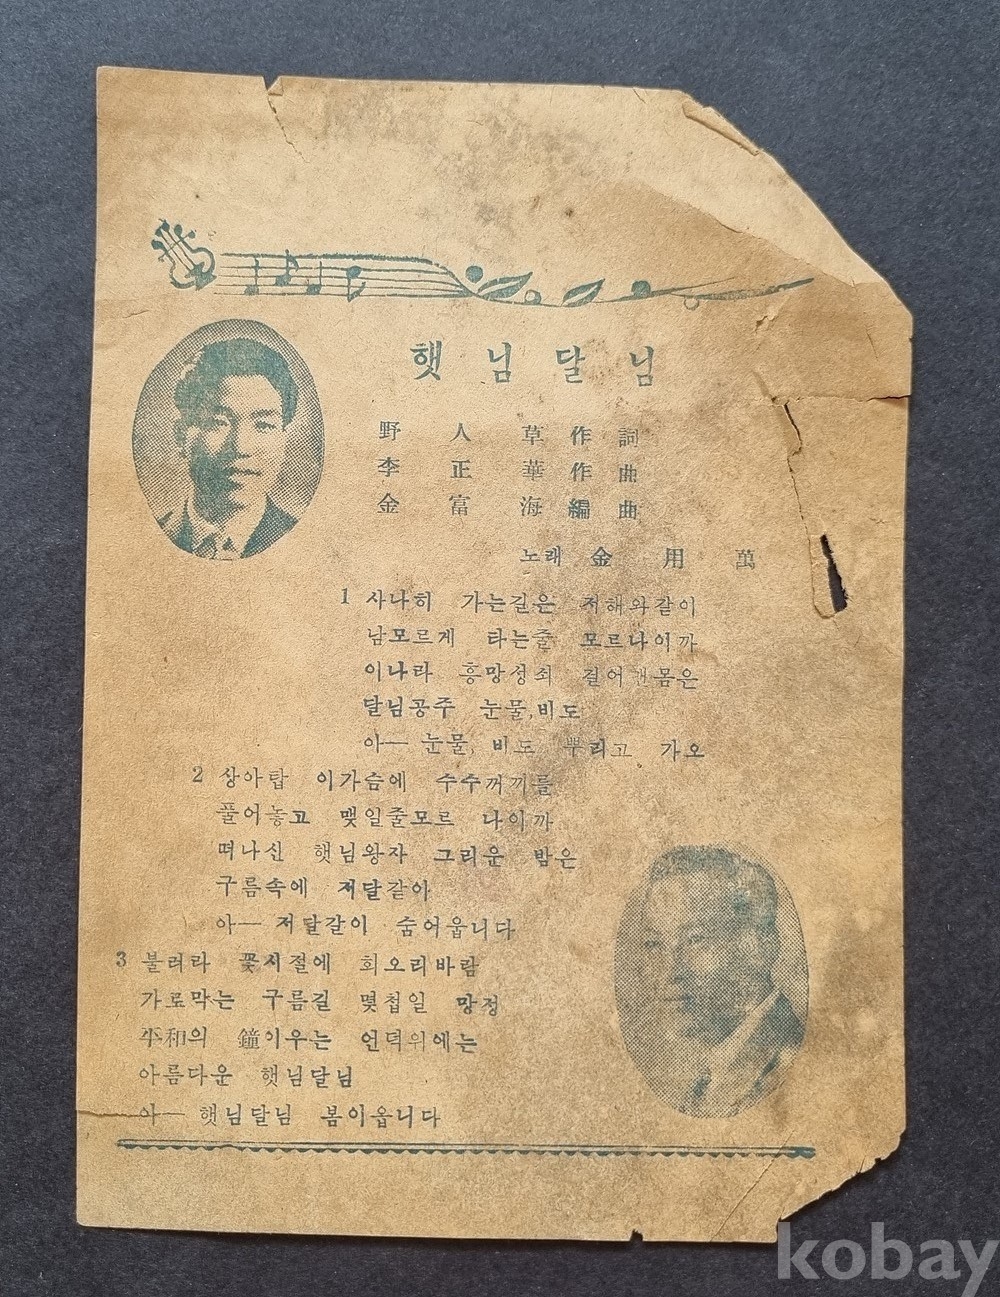 햇님달님
野人草 作詞
李正華 作曲
金富海 編曲
노래 金用萬
1 사나히 가는길은 저해와같이
남모르게 타는줄 모르나이까
이나라 흥망성쇠 걸어 몸은
달님공주 눈물,비도
아— 눈물, 비도 뿌리고 가오
2 상아탑 이가슴에 수수꺼끼를
풀어놓고 맺일줄모르 나이까
떠나신 햇님왕자 그리운 밤은
구름속에 저달같아
아— 저달같이 숨어웁니다
3 불러라 꽃시절에 회오리바람
가로막는 구름길 몇첩일 망정
平和의 鐘이우는 언덕위에는
아름다운 햇님달님
아— 햇님달님 봄이옵니다
kobay